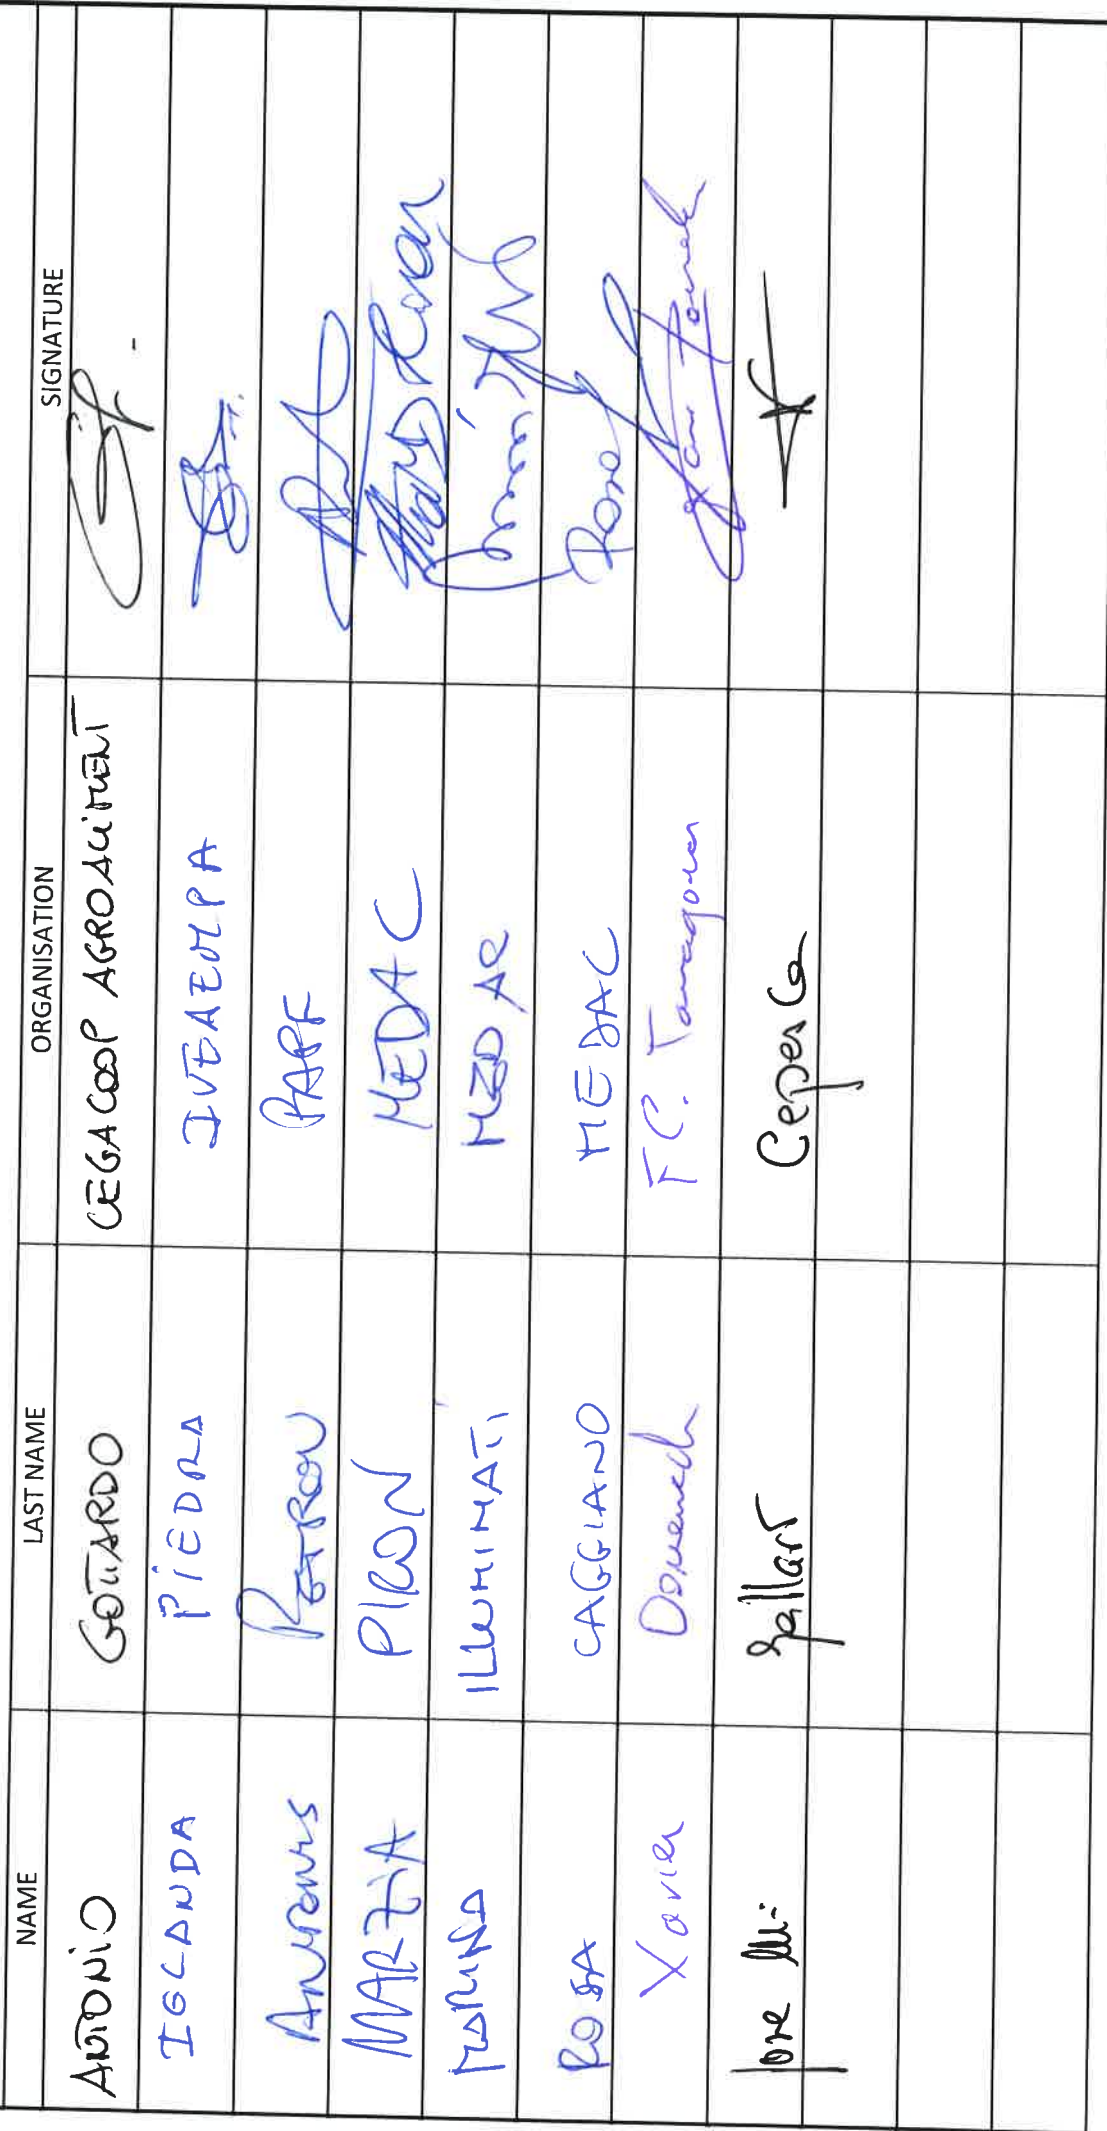 NAME LAST NAME ORGANISATION SIGNATURE
ANTONIO GOTTARDO CEGACOOP AGROALIMENT
IGLANDA PIEDRA IVEAEMPA
Antonis PETROU
MARZIA PIRON MEDAC
MARINA ILLUMINATI
ROSA CAGGIANO MEDAC Rosa
Xavier Domenech F.C. Tarragona
Jose Mª Gallart Cepesca